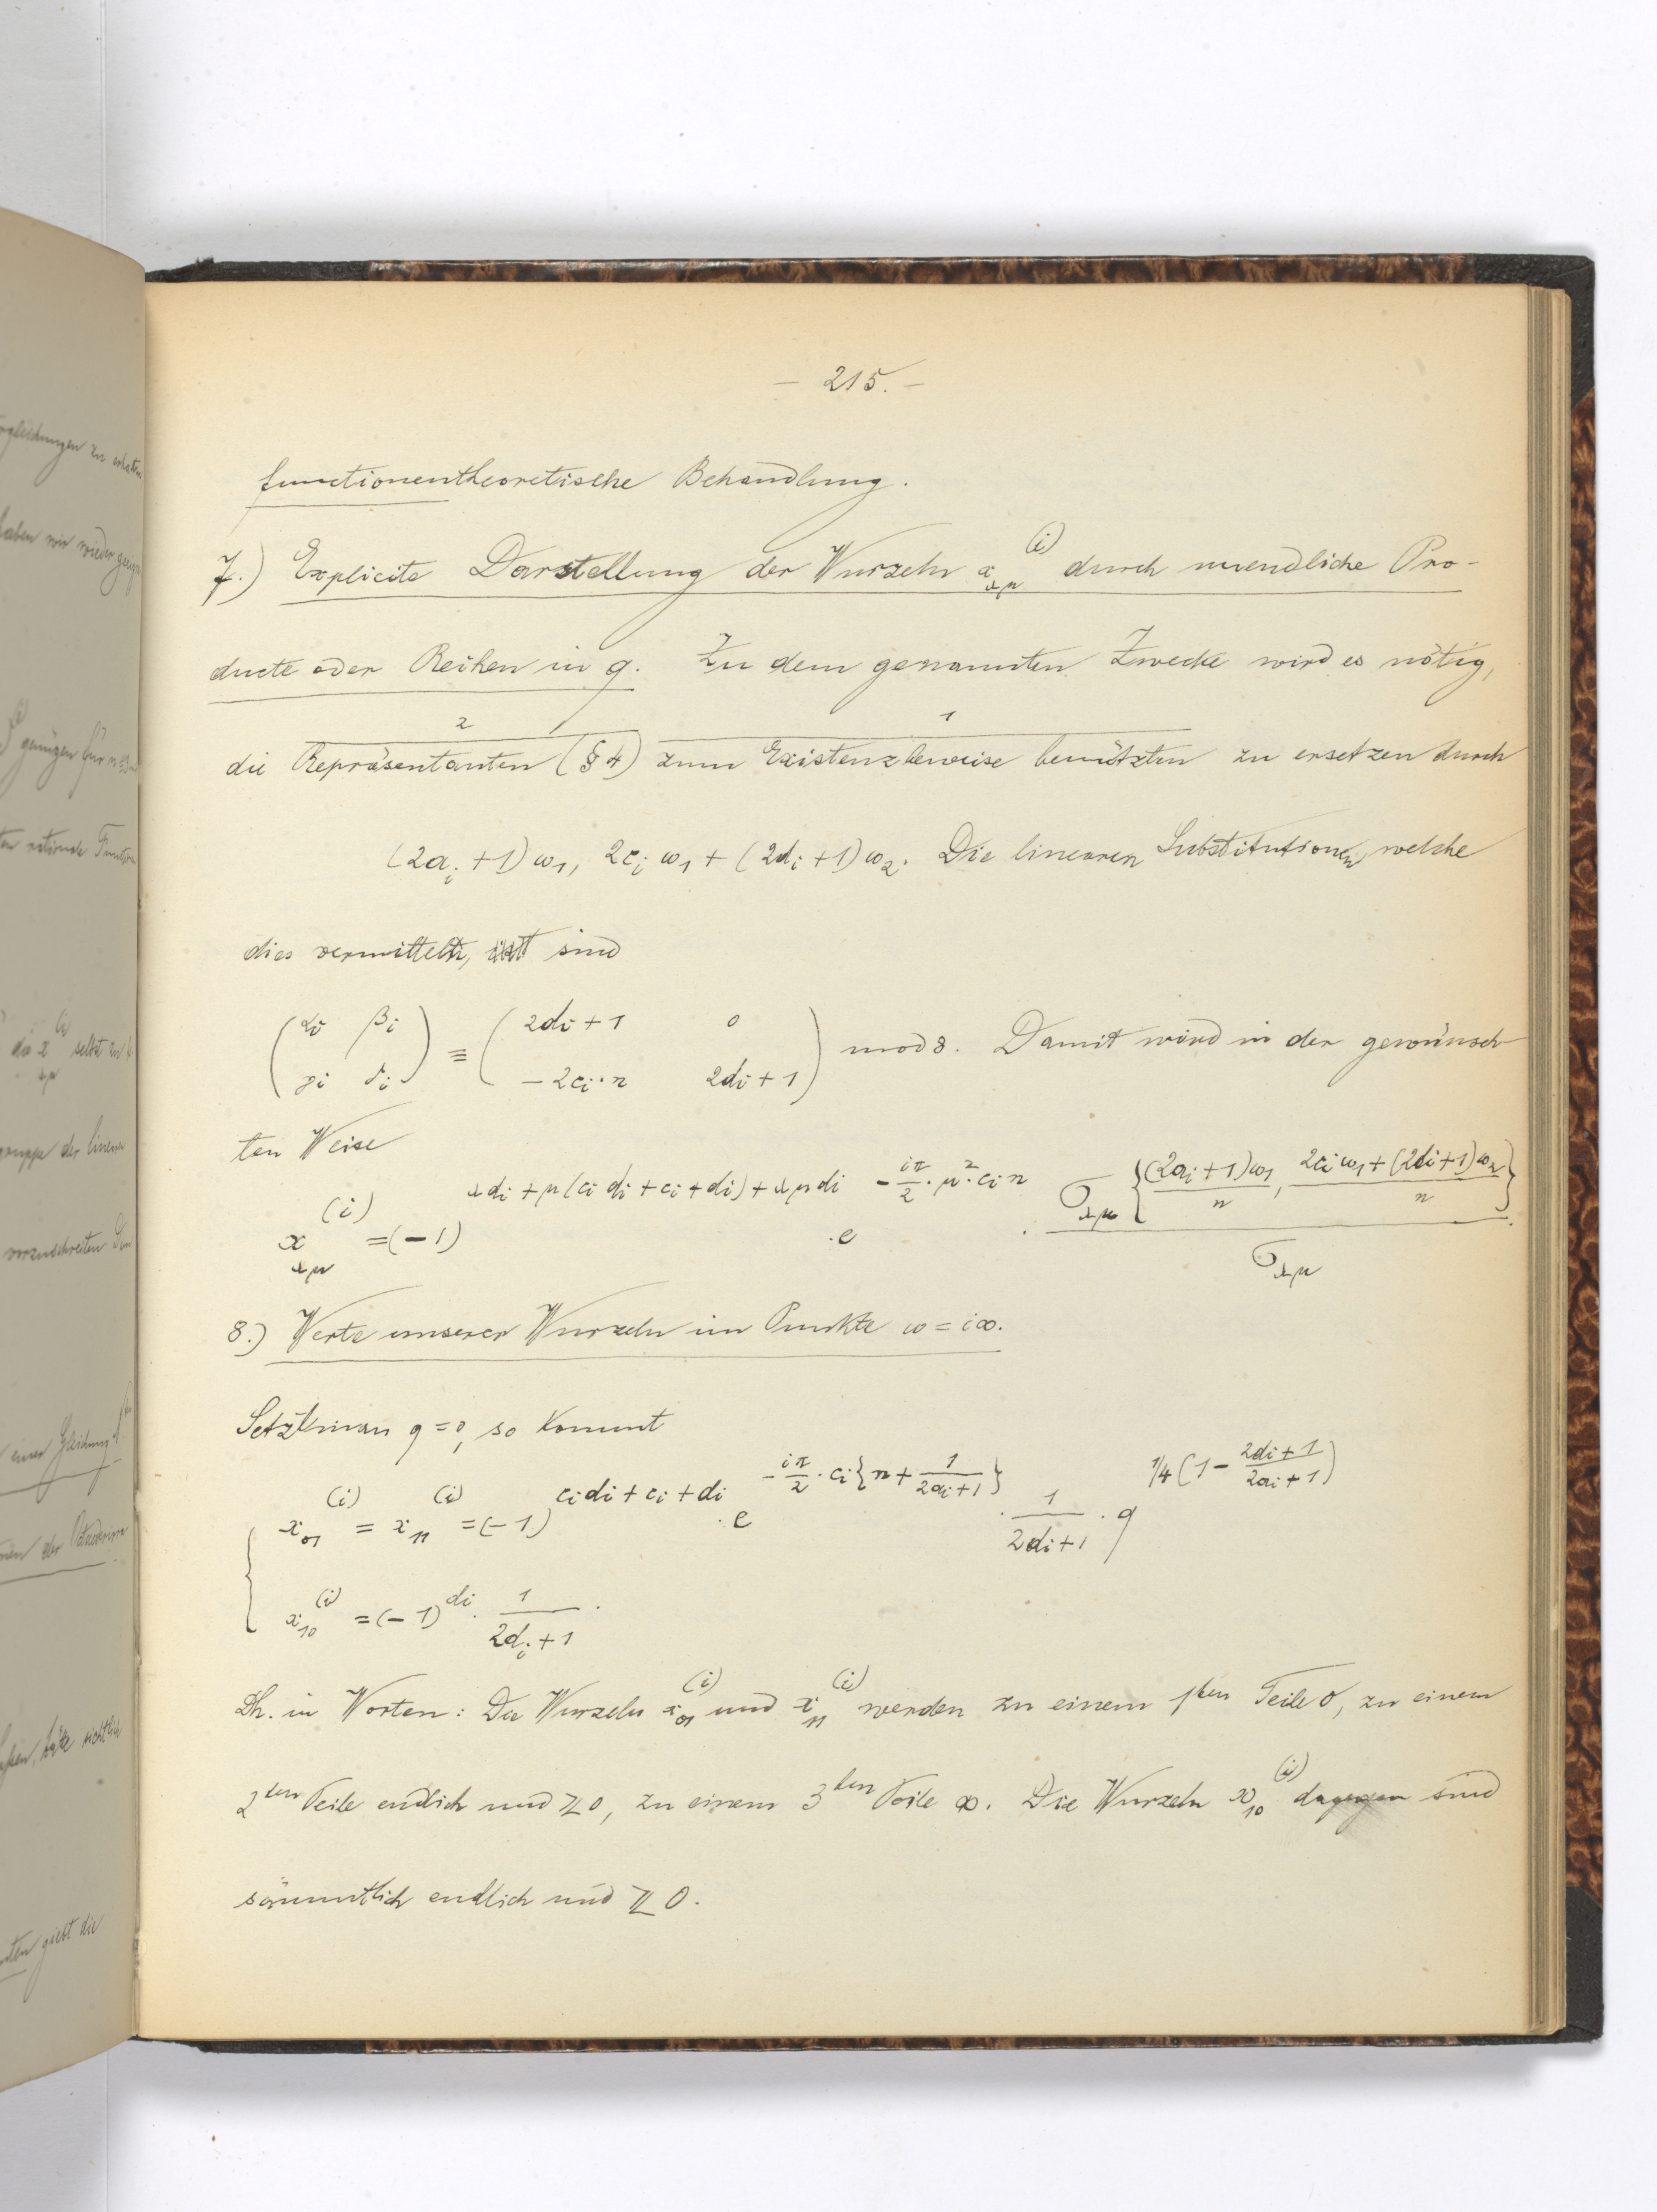 – 215. –
functionentheoretische Behandlung.
7.) Explicite Darstellung der Wurzeln x_{λμ}^{(i)} durch unendliche Pro-
ducte oder Reihen in q. Zu dem genannten Zwecke wird es nötig,
2 1
die Repräsentanten (§ 4) zum Existenzbeweise benützten zu ersetzen durch
(2a_i + 1) ω_1, 2c_i ω_1 + (2d_i + 1) ω_2. Die linearen Substitutionen, welche
dies vermitteln, sind
(α_i β_i / γ_i δ_i) ≡ (2d_i + 1 0 / - 2c_i · n 2d_i + 1) mod 8. Damit wird in der gewünsch-
ten Weise
x_{λμ}^{(i)} = (-1)^{λd_i + μ(c_i d_i + c_i + d_i) + λμd_i} · e^{-\frac{iπ}{2} · μ^2 · c_i n} · \frac{σ_{λμ} \{ \frac{(2a_i+1)ω_1}{n}, \frac{2c_i ω_1 + (2d_i+1)ω_2}{n} \}}{σ_{λμ}}.
8.) Werte unserer Wurzeln im Punkte ω = i∞.
Setzt man q = 0, so kommt
x_{01}^{(i)} = x_{11}^{(i)} = (-1)^{c_i d_i + c_i + d_i} · e^{-\frac{iπ}{2} · c_i \{ n + \frac{1}{2a_i+1} \}} · \frac{1}{2d_i+1} · q^{1/4 (1 - \frac{2d_i+1}{2a_i+1})}
x_{10}^{(i)} = (-1)^{d_i} · \frac{1}{2d_i+1}.
Dh. in Worten: Die Wurzeln x_{01}^{(i)} und x_{11}^{(i)} werden zu einem 1ten Teile 0, zu einem
2ten Teile endlich und ≷ 0, zu einem 3ten Teile ∞. Die Wurzeln x_{10}^{(i)} dagegen sind
sämmtlich endlich und ≷ 0.